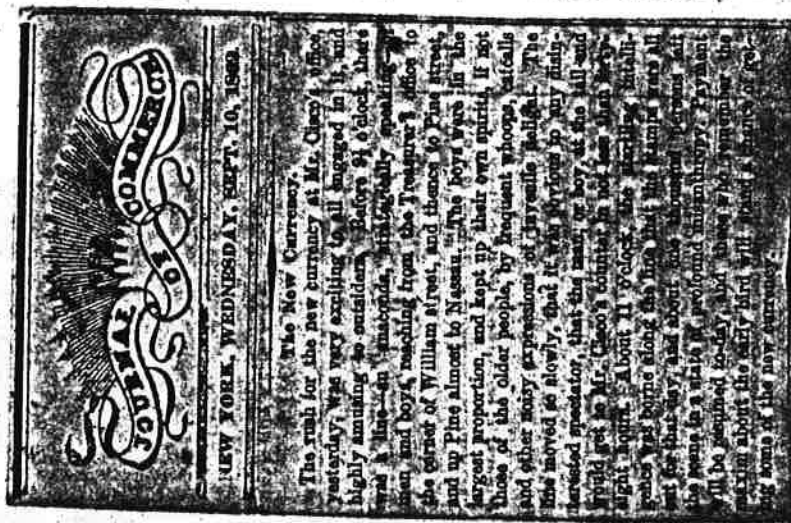 JOURNAL OF COMMERCE
NEW YORK, WEDNESDAY, SEPT. 10, 1862
The New Currency.
The rush for the new currency at Mr. Cisco's office,
yesterday, was very exciting to all engaged in it, and
highly amusing to outsiders. Before 9½ o'clock, there
was a line—en queue, speaking—of
men and boys, reaching from the Treasurer's office to
the corner of William street, and thence to Pine street,
and up Pine almost to Nassau. The boys were in the
largest proportion, and kept up their own spirits, if not
those of the older people, by frequent whoops, catcalls
and other noisy expressions of juvenile delight. The
line moved so slowly, that it was obvious to any disin-
terested spectator, that the man or boy at the tail end
would get to Mr. Cisco's counter in not less than forty-
eight hours. About 11 o'clock, the thrilling intelli-
gence was borne along the line that the stamps were all
out for that day, and about one thousand persons left
the scene in a state of profound misanthropy. Payment
will be resumed to-day, and those who remember the
maxim about the early bird will stand a chance of get-
ting some of the new currency.